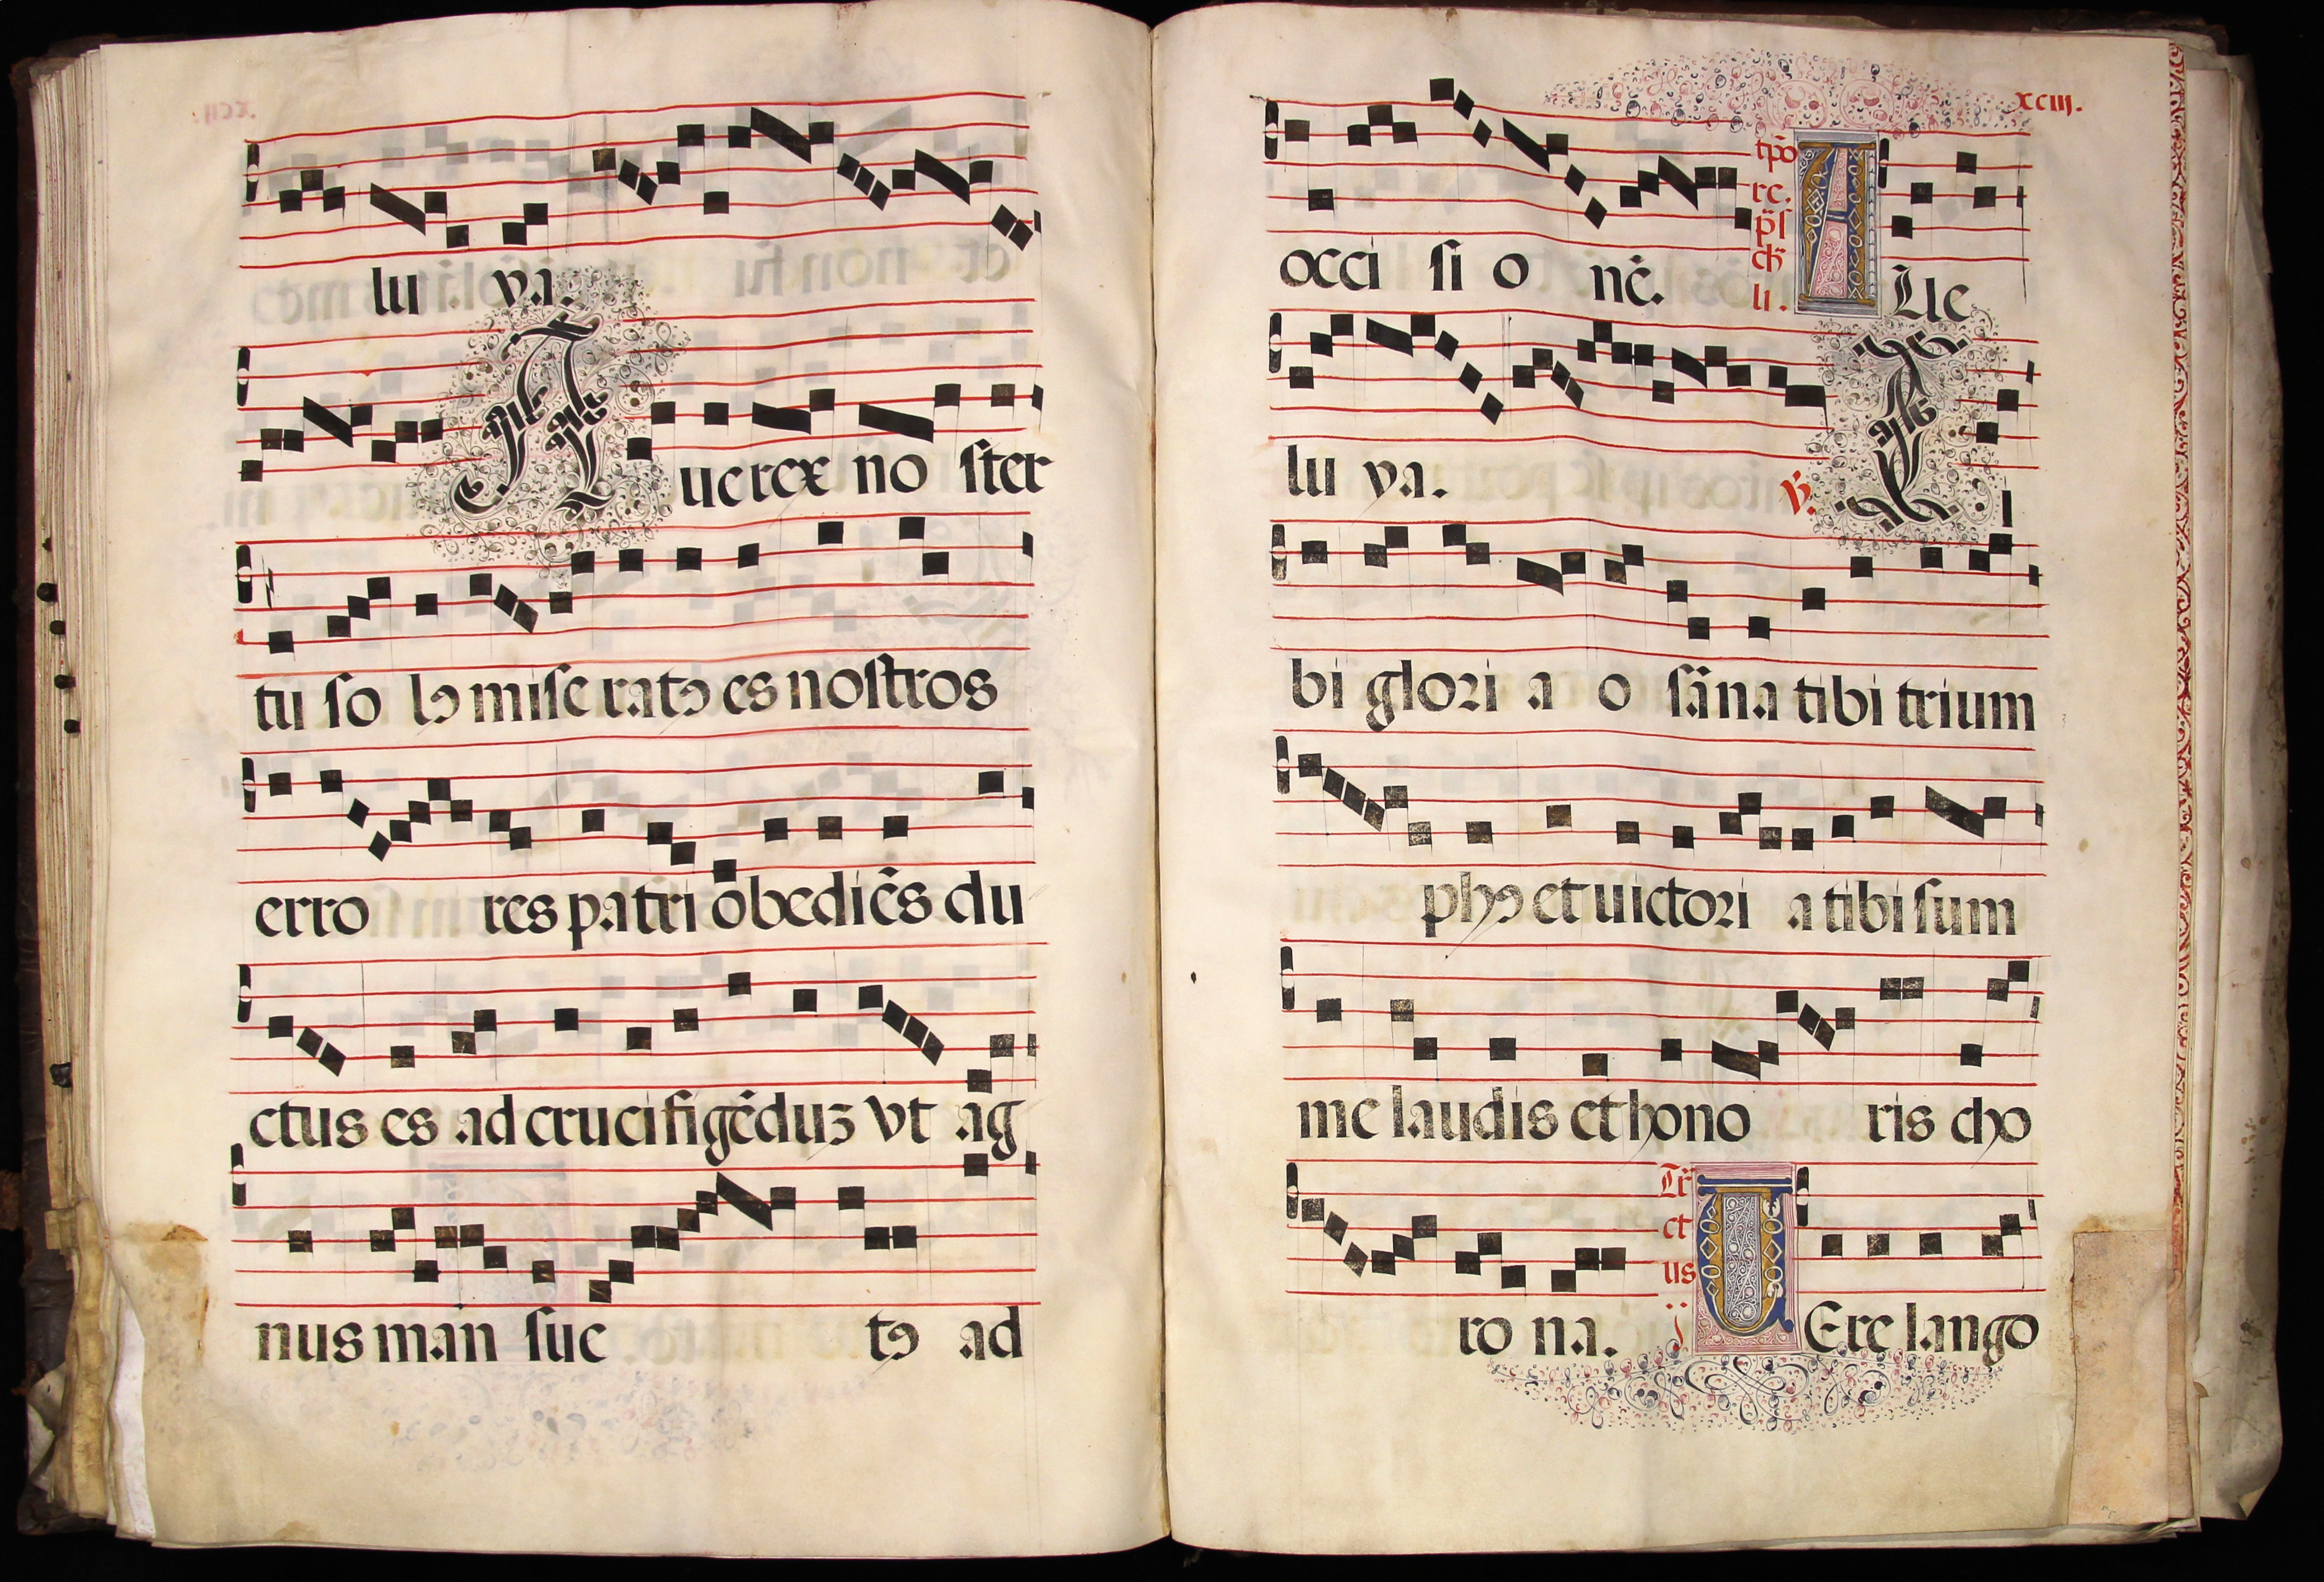 lu ya.
Aue rex no ster
tu so lꝯ mise ratꝯ es nostros
erro res patri obediēs du
ctus es ad crucifigēduꝫ vt ag
nus man sue tꝯ ad
xciij.
occi si o nē.
tp̄o
re.
A Lle
lu ya.
℣.
Tibi glori a o sāna tibi trium
phꝯ et uictori a tibi sum
me laudis et hono ris cho
ro na.
Tr̄
ct
us
VEre lango